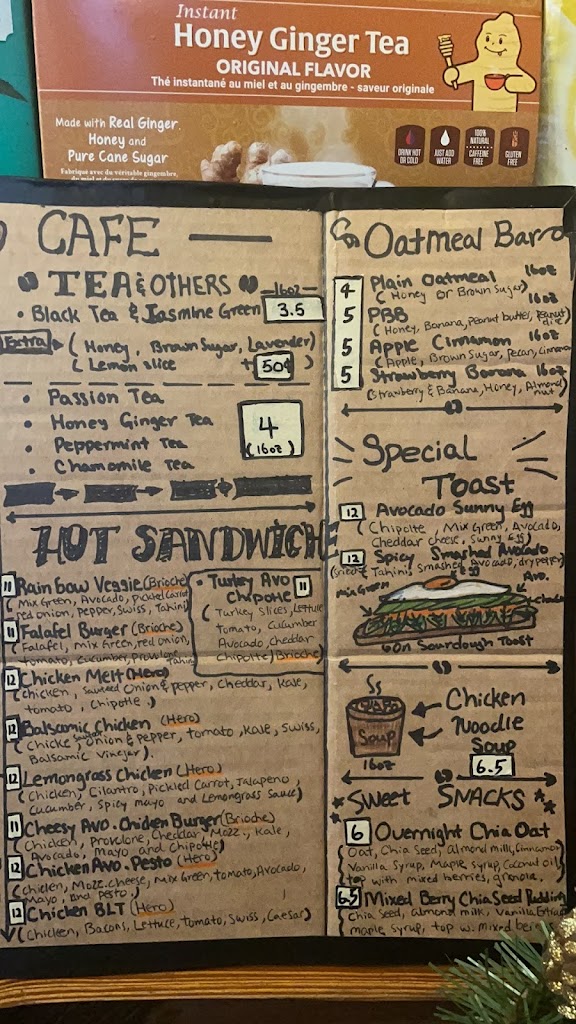 Instant
Honey Ginger Tea
ORIGINAL FLAVOR
Thé instantané au miel et au gingembre - saveur originale
Made with Real Ginger,
Honey and
Pure Cane Sugar
Fabriqué avec du véritable gingembre,
DRINK HOT OR COLD
JUST ADD WATER
100% NATURAL CAFFEINE FREE
GLUTEN FREE
CAFE
TEA & OTHERS
16oz
• Black Tea & Jasmine Green 3.5
Extra (Honey, Brown Sugar, Lavender)
(Lemon slice + 50¢)
• Passion Tea
• Honey Ginger Tea
• Peppermint Tea
• Chamomile Tea
4
(16oz)
HOT SANDWICHE
11 Rainbow Veggie (Brioche)
(Mix Green, Avocado, Pickled Carrot
red onion, Pepper, Swiss, Tahini)
11 Falafel Burger (Brioche)
(Falafel, Mix Green, red onion,
tomato, cucumber, Provlone, Tahini)
• Turkey Avo 11
Chipotle
(Turkey slices, Lettuce
Tomato, Cucumber
Avocado, cheddar
Chipotle) Brioche
12 Chicken Melt (Hero)
(chicken, sauteed Onion & pepper, Cheddar, Kale,
tomato, chipotle.)
12 Balsamic Chicken (Hero)
(Chicke, Onion & Pepper, tomato, Kale, Swiss,
Balsamic Vinejar).
12 Lemongrass Chicken (Hero)
(Chicken, Cilantro, Pickled Carrot, Jalapeno,
Cucumber, Spicy mayo and Lemongrass Sauce)
11 Cheesy Avo. Chicken Burger (Brioche)
(Chicken, Provlone, Cheddar, Mozz., Kale,
Avocado, Mayo and Chipotle)
12 Chicken Avo. Pesto (Hero)
(chicken, Mozz. cheese, Mix Green, tomato, Avocado,
Mayo, and Pesto.)
12 Chicken BLT (Hero)
(Chicken, Bacons, Lettuce, Tomato, Swiss, Caesar)
Oatmeal Bar
4 Plain Oatmeal 16oz
(Honey or Brown Sugar)
5 PBB 16oz
(Honey, Banana, Peanut butter, Peanut
5 Apple Cinnamon 16oz
(Apple, Brown Sugar, Pecan, Cinnamon
5 Strawberry Banana 16oz
(Strawberry & Banana, Honey, Almond
nut)
Special
Toast
12 Avocado Sunny Egg
(Chipotle, Mix Green, Avocado,
Cheddar cheese, Sunny Egg)
12 Spicy Smashed Avocado
Tahini, Smashed Avocado, dry pepper)
Egg
Avo.
Mix Green
on Sourdough Toast
Soup
16oz
Chicken
Noodle
Soup
6.5
Sweet SNACKS
6 Overnight Chia Oat
(Oat, Chia Seed, almond milk, Cinnamon
Vanilla Syrup, Maple syrup, Coconut oil,
top with mixed berries, granola.
6.5 Mixed Berry Chia Seed Pudding
Chia seed, almond milk, Vanilla Extract
maple syrup, top w. mixed berries